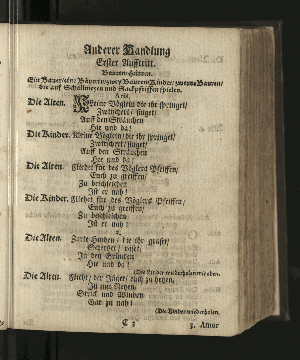 Anderer Handlung
Erster Aufftritt.
Bauren-Hütten.
Ein Bauer/eine Bäuerin/zwey Bauren-Kinder/zweene Bauren/
die auff Schallmeyen und Sackpfeiffen spielen.
Aria.
Die Alten. Kleine Vöglein die ihr springet/
Zwitschert/ singet/
Auff den Sträuchen
Hie und da!
Die Kinder. Kleine Vöglein/ die ihr springet/
Zwitschert/ singet/
Auff den Sträuchen
Hie und da!
Die Alten. Fliehet für des Vöglers Pfeiffen/
Euch zu greiffen/
Zu beschleichen
Ist er nah!
Die Kinder. Fliehet für des Vöglers Pfeiffen/
Euch zu greiffen/
Zu beschleichen
Ist er nah!
2.
Die Alten. Zarte Hinden/ die ihr graset/
In den Gründen
Hie und da!
(Die Kinder wiederholen
Die Alten. Flieht/ der Jäger/ euch zu hetzen,
Zu um Netzen,
Strick und Winden
Gar zu nah!
(Die Kinder wiederholen.
C 3
3. Amor